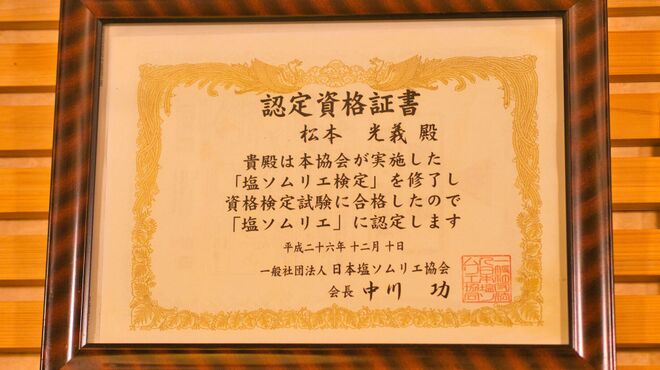 認定資格証書
松本 光義 殿
貴殿は本協会が実施した
「塩ソムリエ検定」を修了し
資格検定試験に合格したので
「塩ソムリエ」に認定します
平成二十六年 十二月 十日
一般社団法人 日本塩ソムリエ協会
会長 中川 功